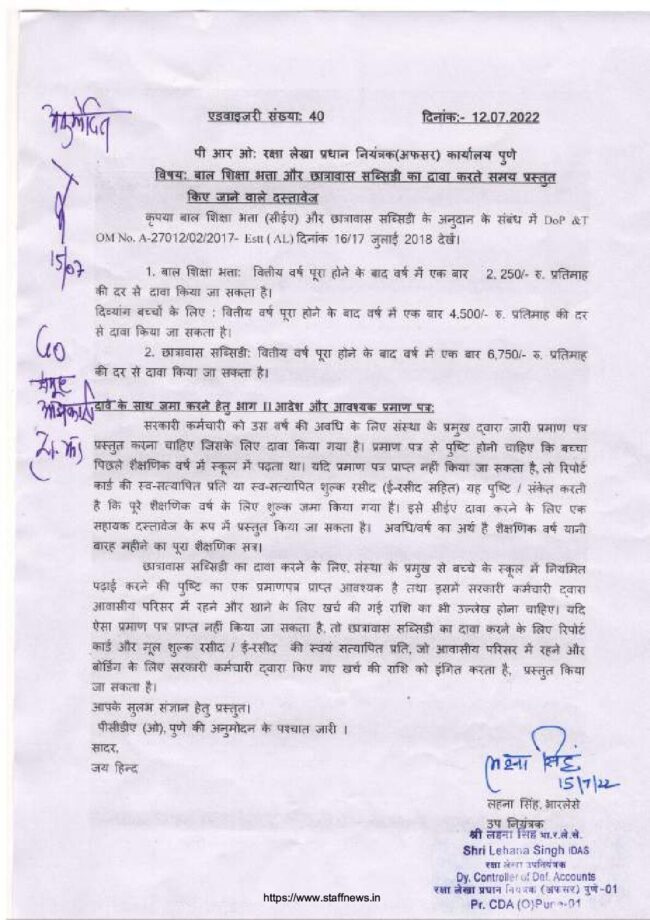 अनुमोदित
15/07
GO
समूह
एडवाइजरी संख्या: 40 दिनांक:- 12.07.2022
पी आर ओ: रक्षा लेखा प्रधान नियंत्रक(अफसर) कार्यालय पुणे
विषय: बाल शिक्षा भत्ता और छात्रावास सब्सिडी का दावा करते समय प्रस्तुत
किए जाने वाले दस्तावेज
कृपया बाल शिक्षा भत्ता (सीईए) और छात्रावास सब्सिडी के अनुदान के संबंध में DoP &T
OM No. A-27012/02/2017- Estt ( AL) दिनांक 16/17 जुलाई 2018 देखें।
1. बाल शिक्षा भत्ता: वित्तीय वर्ष पूरा होने के बाद वर्ष में एक बार 2, 250/- रु. प्रतिमाह
की दर से दावा किया जा सकता है।
दिव्यांग बच्चों के लिए : वित्तीय वर्ष पूरा होने के बाद वर्ष में एक बार 4,500/- रु. प्रतिमाह की दर
से दावा किया जा सकता है।
2. छात्रावास सब्सिडी: वित्तीय वर्ष पूरा होने के बाद वर्ष में एक बार 6,750/- रु. प्रतिमाह
की दर से दावा किया जा सकता है।
दावे के साथ जमा करने हेतु भाग II आदेश और आवश्यक प्रमाण पत्र:
सरकारी कर्मचारी को उस वर्ष की अवधि के लिए संस्था के प्रमुख द्वारा जारी प्रमाण पत्र
प्रस्तुत करना चाहिए जिसके लिए दावा किया गया है। प्रमाण पत्र से पुष्टि होनी चाहिए कि बच्चा
पिछले शैक्षणिक वर्ष में स्कूल में पढ़ता था। यदि प्रमाण पत्र प्राप्त नहीं किया जा सकता है, तो रिपोर्ट
कार्ड की स्व-सत्यापित प्रति या स्व-सत्यापित शुल्क रसीद (ई-रसीद सहित) यह पुष्टि / संकेत करती
है कि पूरे शैक्षणिक वर्ष के लिए शुल्क जमा किया गया है। इसे सीईए दावा करने के लिए एक
सहायक दस्तावेज के रूप में प्रस्तुत किया जा सकता है। अवधि/वर्ष का अर्थ है शैक्षणिक वर्ष यानी
बारह महीने का पूरा शैक्षणिक सत्र।
छात्रावास सब्सिडी का दावा करने के लिए, संस्था के प्रमुख से बच्चे के स्कूल में नियमित
पढ़ाई करने की पुष्टि का एक प्रमाणपत्र प्राप्त आवश्यक है तथा इसमें सरकारी कर्मचारी द्वारा
आवासीय परिसर में रहने और खाने के लिए खर्च की गई राशि का भी उल्लेख होना चाहिए। यदि
ऐसा प्रमाण पत्र प्राप्त नहीं किया जा सकता है, तो छात्रावास सब्सिडी का दावा करने के लिए रिपोर्ट
कार्ड और मूल शुल्क रसीद / ई-रसीद की स्वयं सत्यापित प्रति, जो आवासीय परिसर में रहने और
बोर्डिंग के लिए सरकारी कर्मचारी द्वारा किए गए खर्च की राशि को इंगित करता है, प्रस्तुत किया
जा सकता है।
आपके सुलभ संज्ञान हेतु प्रस्तुत।
पीसीडीए (ओ), पुणे की अनुमोदन के पश्चात जारी ।
सादर,
जय हिन्द
लहना सिंह
15/7/22
लहना सिंह, भारलेसे
उप नियंत्रक
श्री लहना सिंह भा.र.ले.से.
Shri Lehana Singh IDAS
रक्षा लेखा उपनियंत्रक
Dy. Controller of Def. Accounts
रक्षा लेखा प्रधान नियंत्रक (अफसर) पुणे-01
Pr. CDA (O)Pune-01
https://www.staffnews.in